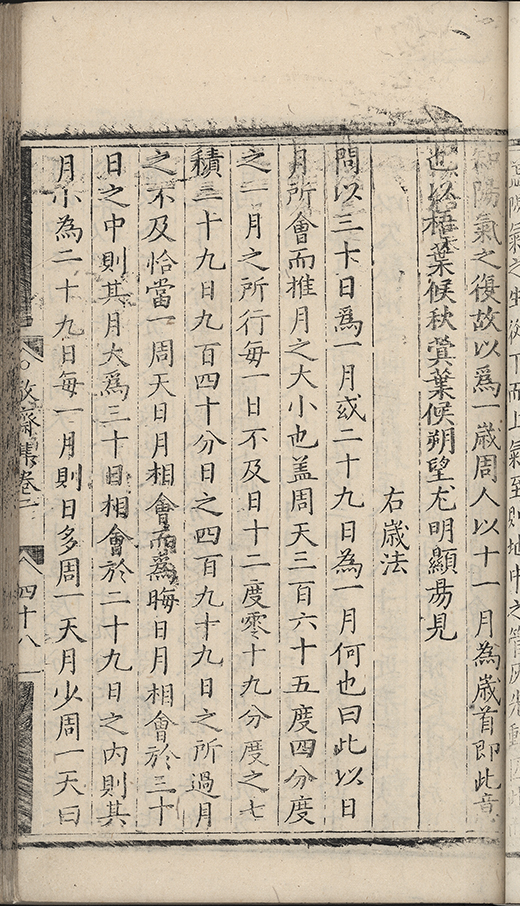 陽氣之復故以爲一歲周人以十一月為歲首即此意
也以梧葉候秋蓂葉候朔望尤明顯昜見
右歲法
問以三十日爲一月或二十九日為一月何也曰此以日
月所會而推月之大小也盖周天三百六十五度四分度
之一月之所行每一日不及日十二度零十九分度之七
積二十九日九百四十分日之四百九十九日之所過月
之不及恰當一周天日月相會而爲晦日月相會於三十
日之中則其月大爲三十日相會於二十九日之內則其
月小為二十九日每一月則日多周一天月少周一天曰
齋集卷二
四十八